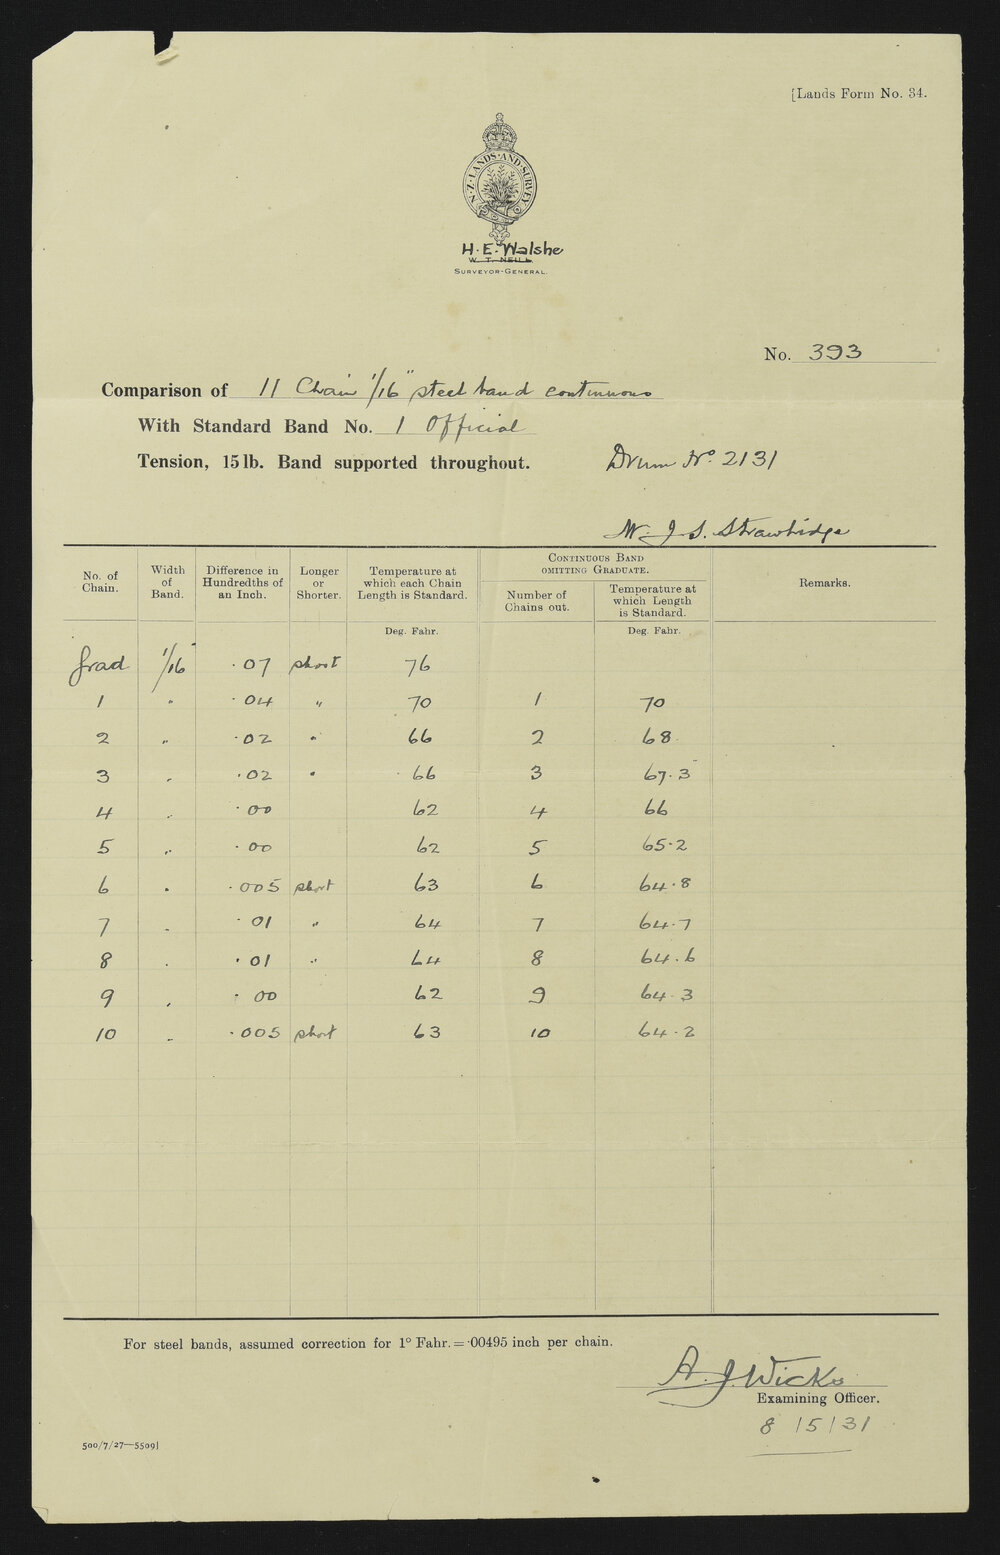 [Lands Form No. 34.
N.Z. LANDS AND SURVEY
H. E. Walshe
W. T. NEILL,
SURVEYOR-GENERAL.
No. 393
Comparison of 11 Chain 1/16" steel band continuous
With Standard Band No. 1 Official
Tension, 15 lb. Band supported throughout. Drum No. 2131
W. J. S. Strawbridge
No. of Chain. Width of Band. Difference in Hundredths of an Inch. Longer or Shorter. Temperature at which each Chain Length is Standard. CONTINUOUS BAND OMITTING GRADUATE. Number of Chains out. Temperature at which Length is Standard. Remarks.
Deg. Fahr. Deg. Fahr.
Grad 1/16" ·07 short 76
1 " ·04 " 70 1 70
2 " ·02 " 66 2 68
3 " ·02 " 66 3 67·3
4 " ·00 62 4 66
5 " ·00 62 5 65·2
6 " ·005 short 63 6 64·8
7 " ·01 " 64 7 64·7
8 " ·01 " 64 8 64·6
9 " ·00 62 9 64·3
10 " ·005 short 63 10 64·2
For steel bands, assumed correction for 1° Fahr. = ·00495 inch per chain.
A. J. Wicks
Examining Officer.
8/5/31
500/7/27—5509]